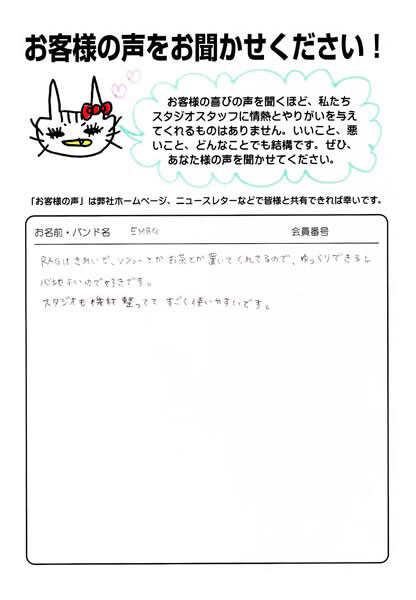 お客様の声をお聞かせください！
お客様の喜びの声を聞くほど、私たち
スタジオスタッフに情熱とやりがいを与え
てくれるものはありません。いいこと、悪
いこと、どんなことでも結構です。ぜひ、
あなた様の声を聞かせてください。
「お客様の声」は弊社ホームページ、ニュースレターなどで皆様と共有できれば幸いです。
お名前・バンド名 会員番号
RAGはきれいで、ソファーとか お茶とか置いてくれてるので、ゆっくりできるし
心地いいので好きです。
スタジオも機材 整ってて すごく使いやすいです。